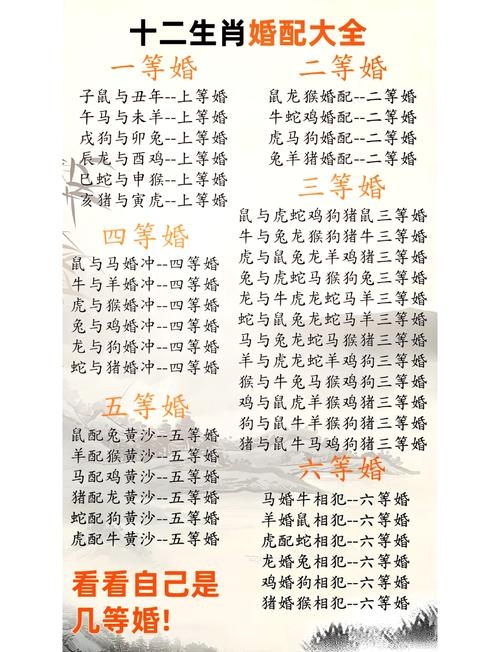 十二生肖婚配大全
一等婚
子鼠与丑年--上等婚
午马与未羊--上等婚
戌狗与卯兔--上等婚
辰龙与酉鸡--上等婚
巳蛇与申猴--上等婚
亥猪与寅虎--上等婚
二等婚
鼠龙猴婚配--二等婚
牛蛇鸡婚配--二等婚
虎马狗婚配--二等婚
兔羊猪婚配--二等婚
三等婚
鼠与虎蛇鸡狗猪鼠三等婚
牛与兔龙猴狗猪牛三等婚
虎与鼠兔龙羊鸡猪三等婚
兔与虎蛇马猴狗兔三等婚
龙与牛虎龙蛇马羊三等婚
蛇与鼠兔龙蛇马羊三等婚
马与兔龙蛇马猴猪三等婚
羊与虎龙蛇羊鸡狗三等婚
猴与牛兔马猴鸡狗三等婚
鸡与鼠虎羊猴鸡猪三等婚
狗与鼠牛羊猴狗猪三等婚
猪与鼠牛马鸡狗猪三等婚
四等婚
鼠与马婚冲--四等婚
牛与羊婚冲--四等婚
虎与猴婚冲--四等婚
兔与鸡婚冲--四等婚
龙与狗婚冲--四等婚
蛇与猪婚冲--四等婚
五等婚
鼠配兔黄沙--五等婚
羊配猴黄沙--五等婚
马配鸡黄沙--五等婚
猪配龙黄沙--五等婚
蛇配狗黄沙--五等婚
虎配牛黄沙--五等婚
六等婚
马婚牛相犯--六等婚
羊婚鼠相犯--六等婚
虎配蛇相犯--六等婚
龙婚兔相犯--六等婚
鸡婚狗相犯--六等婚
猪婚猴相犯--六等婚
看看自己是
几等婚!